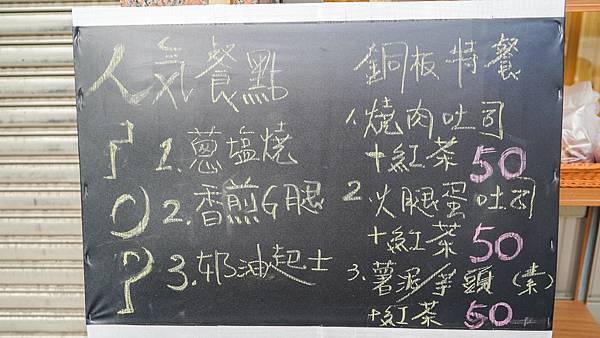 人氣餐點
P
O
P
1.蔥塩燒
2.香煎G腿
3.奶油起士
銅板特餐
1.燒肉吐司
+紅茶 50
2.火腿蛋吐司
+紅茶 50
3.薯泥/芋頭(素)
+紅茶 50